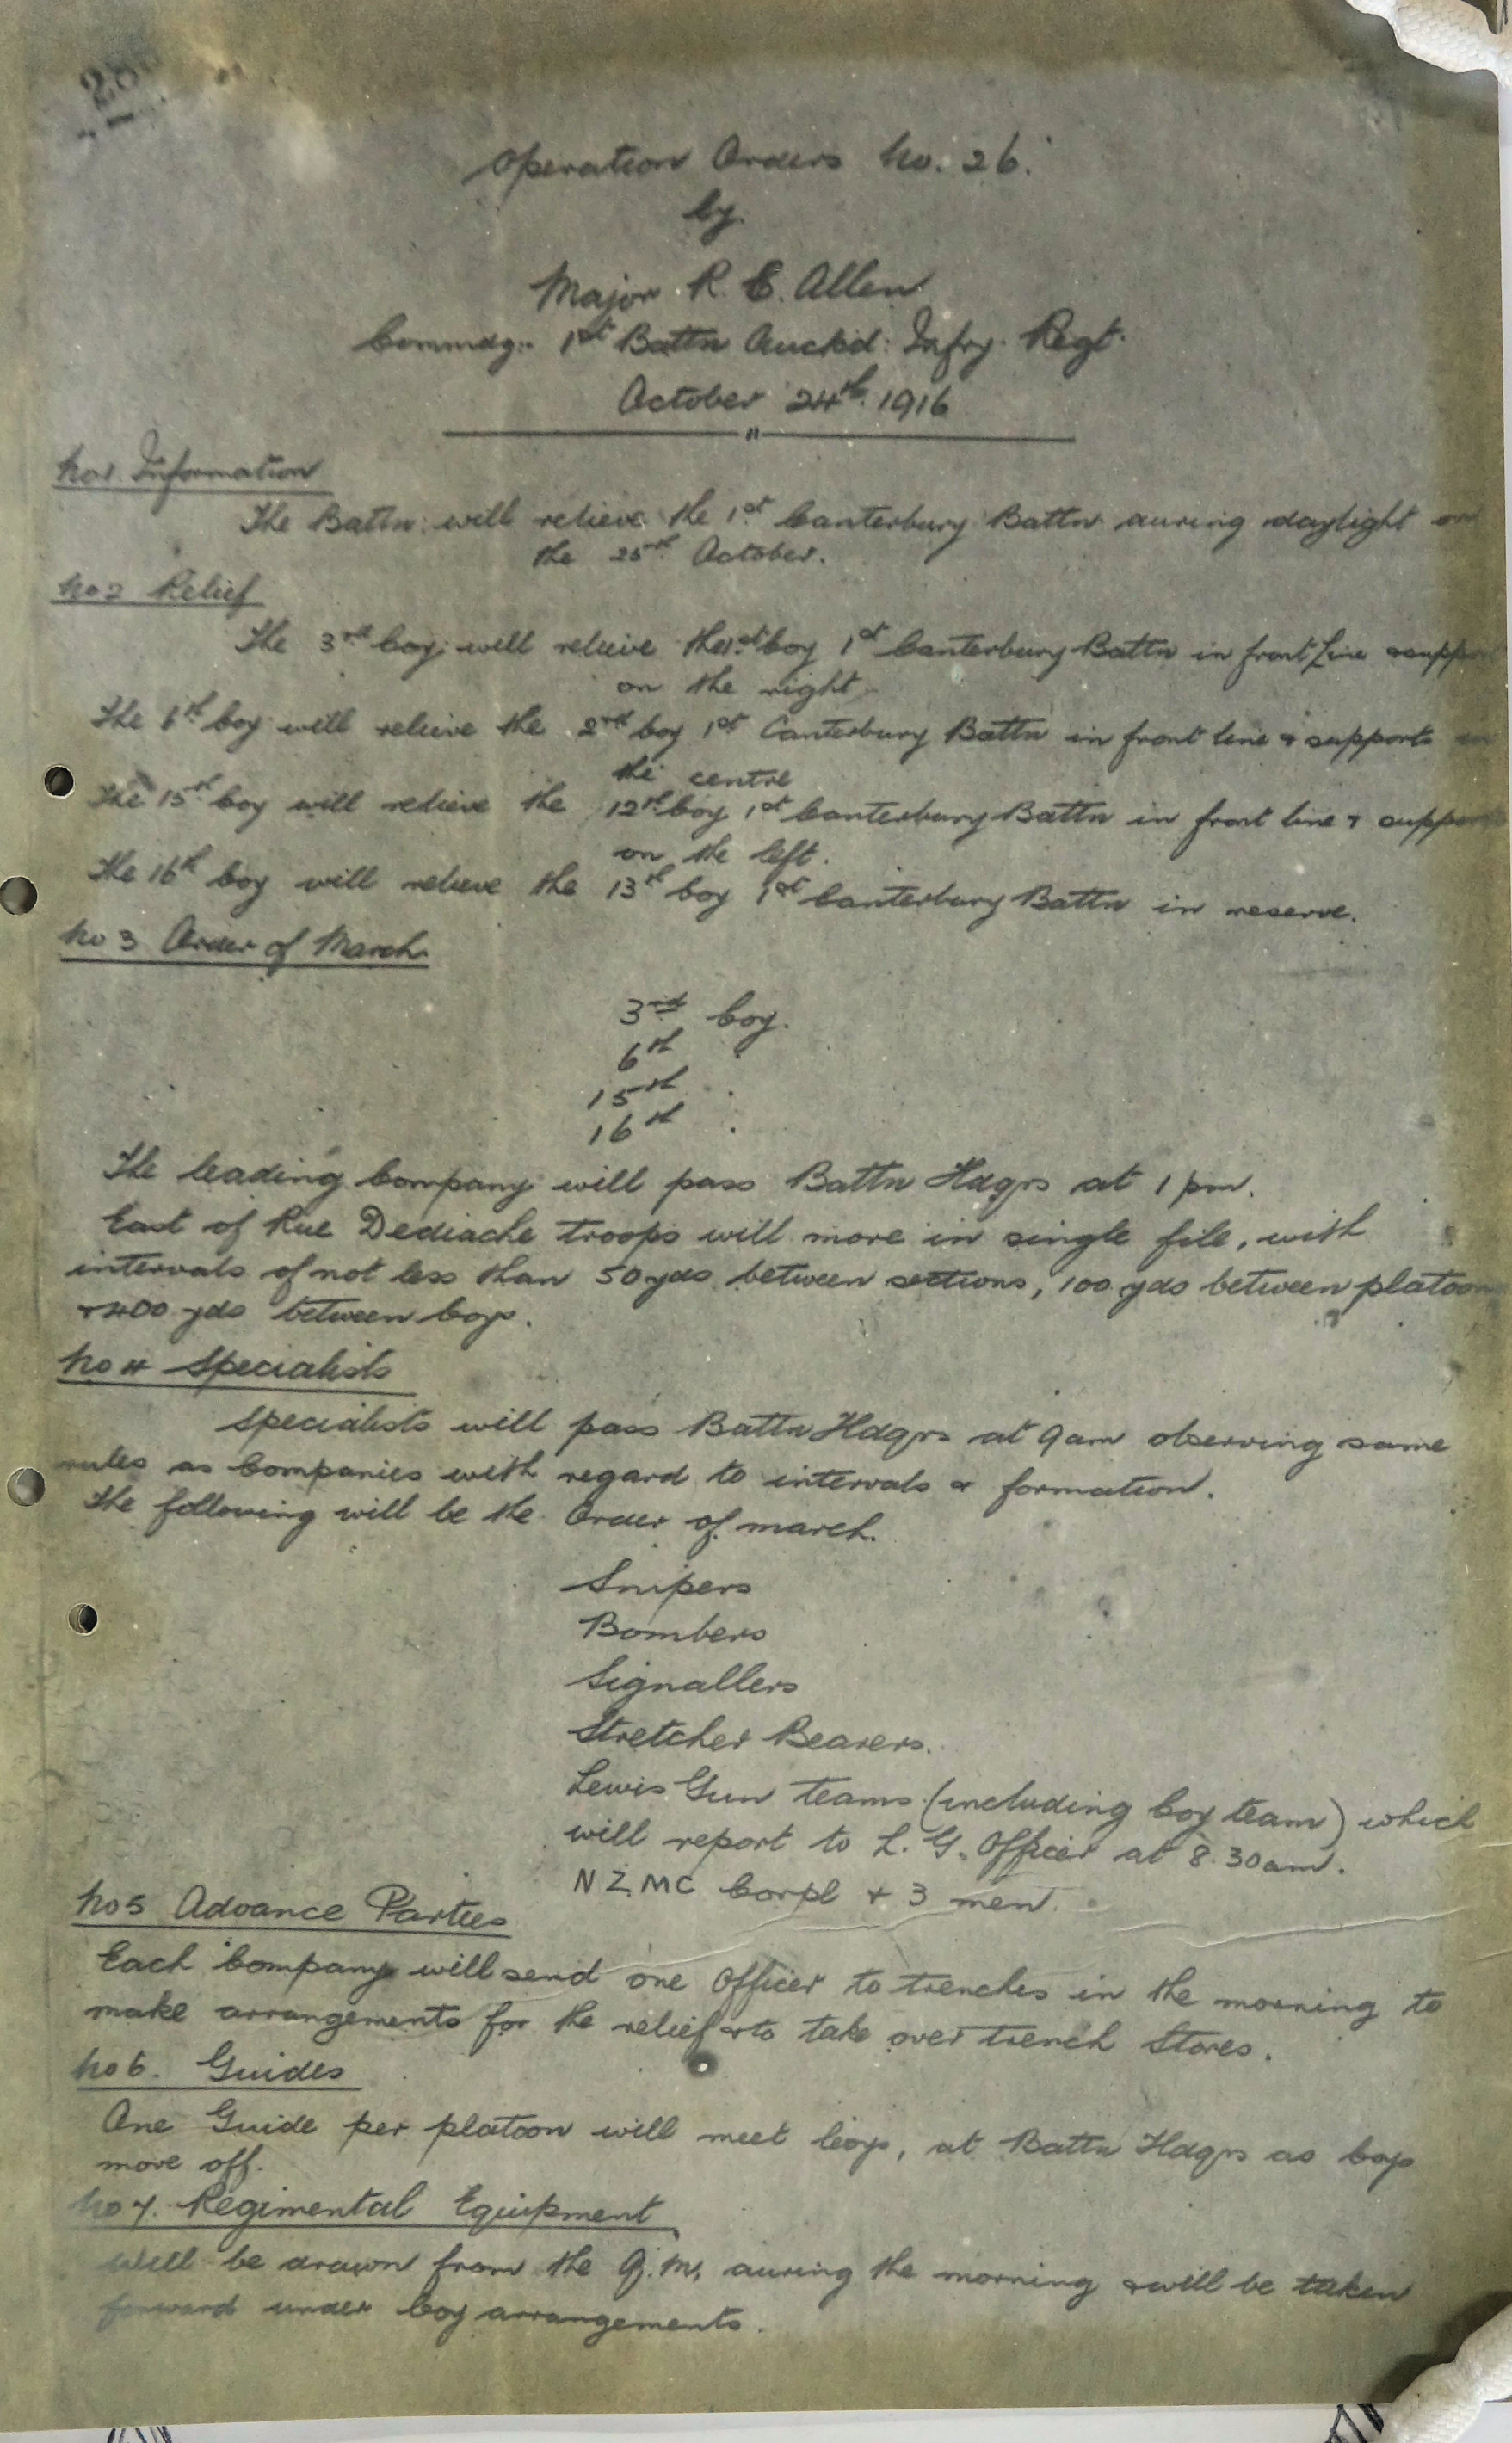 28
Operation Orders No. 26.
by
Major R. E. Allen
Commdg: 1st Battn Auckd: Infry. Regt.
October 24th 1916
No 1. Information
The Battn: will relieve the 1st Canterbury Battn during daylight on
the 25th October.
No 2 Relief
The 3rd Coy: will relieve the 1st Coy 1st Canterbury Battn in front line & suppor
on the right
The 6th Coy will relieve the 2nd Coy 1st Canterbury Battn in front line & supports in
the centre
The 15th Coy will relieve the 12th Coy 1st Canterbury Battn in front line & support
on the left.
The 16th Coy will relieve the 13th Coy 1st Canterbury Battn in reserve.
No 3 Order of March
3rd Coy.
6th "
15th "
16th "
The leading Company will pass Battn Hdqrs at 1 pm.
East of Rue Dediache troops will move in single file, with
intervals of not less than 50 yds between sections, 100 yds between platoon
& 400 yds between Coys.
No 4 Specialists
Specialists will pass Battn Hdqrs at 9am observing same
rules as Companies with regard to intervals & formation.
The following will be the Order of march.
Snipers
Bombers
Signallers
Stretcher Bearers.
Lewis Gun teams (including Coy team) which
will report to L. G. Officer at 8.30am.
NZMC Corpl + 3 men.
No 5 Advance Parties
Each Company will send one Officer to trenches in the morning to
make arrangements for the relief & to take over trench Stores.
No 6. Guides
One Guide per platoon will meet Coys, at Battn Hdqrs as Coys
move off.
No 7. Regimental Equipment
Will be drawn from the Q.M. during the morning & will be taken
forward under Coy arrangements.